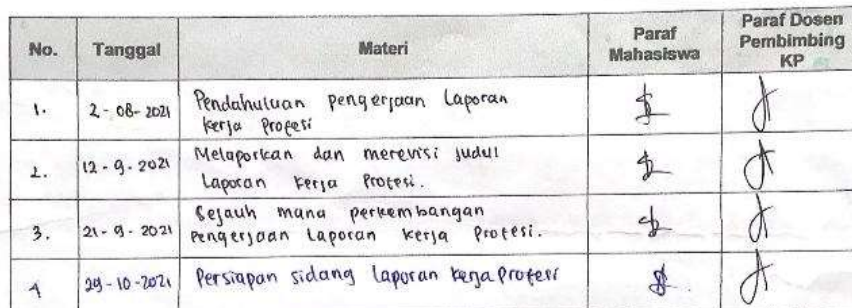 No. Tanggal Materi Paraf Mahasiswa Paraf Dosen Pembimbing KP
1. 2-08-2021 Pendahuluan pengerjaan Laporan
kerja Profesi
2. 12-9-2021 Melaporkan dan merevisi judul
Laporan kerja Profesi.
3. 21-9-2021 Sejauh mana perkembangan
pengerjaan Laporan kerja Profesi.
4 29-10-2021 Persiapan sidang Laporan kerja Profesi